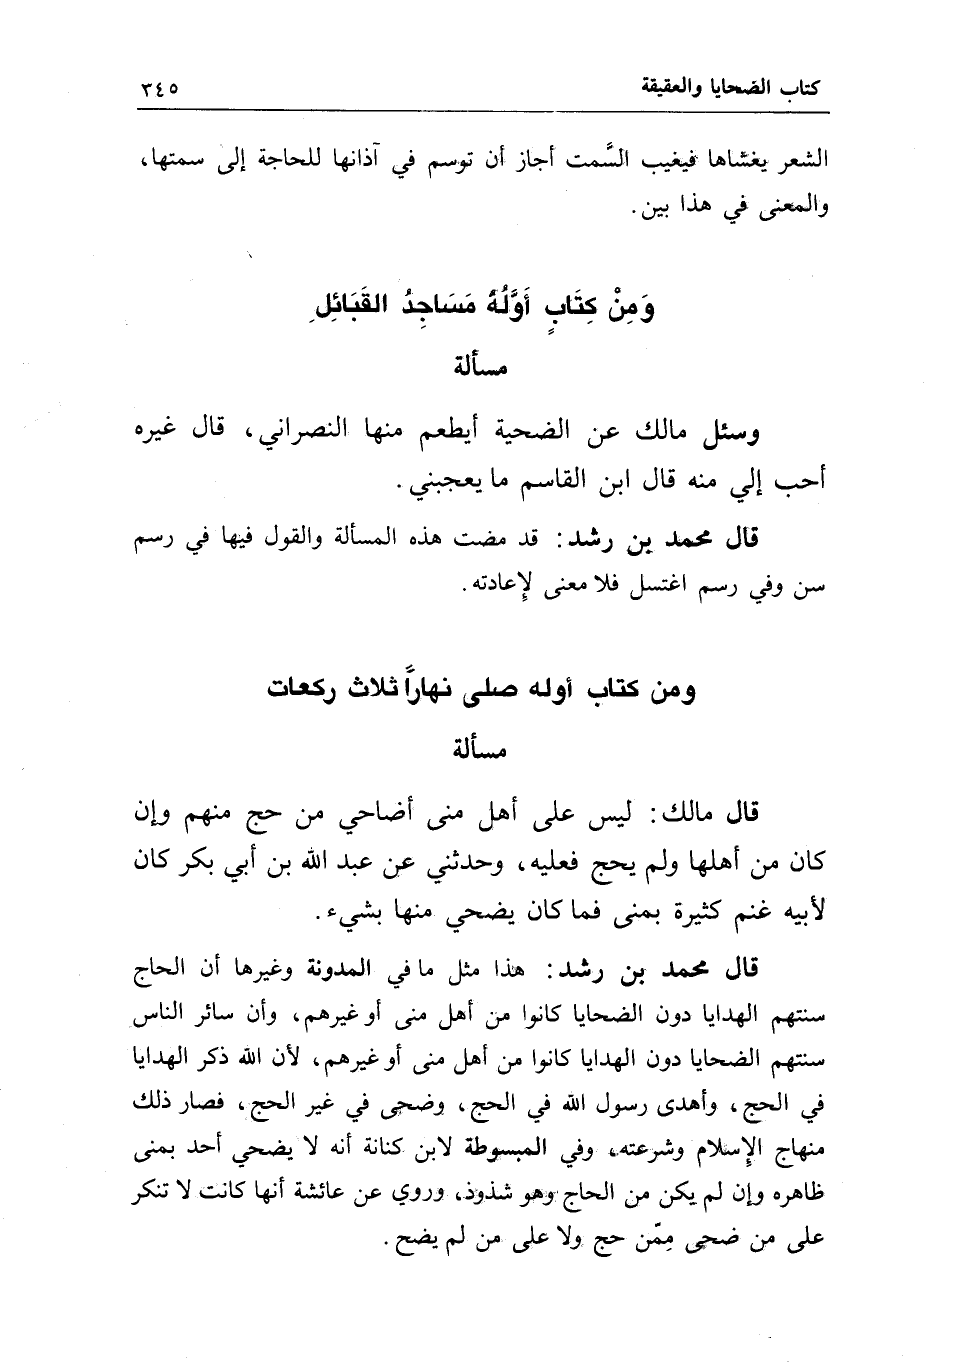 كتاب الضحايا والعقيقة ٣٤٥
الشعر يغشاها فيغيب السَّمت أجاز أن توسم في آذانها للحاجة إلى سمتها،
والمعنى في هذا بين.
وَمِنْ كِتَابٍ أَوَّلُهُ مَسَاجِدُ القَبَائِلِ
مسألة
وسئل مالك عن الضحية أيطعم منها النصراني، قال غيره
أحب إلي منه قال ابن القاسم ما يعجبني.
قال محمد بن رشد: قد مضت هذه المسألة والقول فيها في رسم
سن وفي رسم اغتسل فلا معنى لإعادته.
ومن كتاب أوله صلى نهاراً ثلاث ركعات
مسألة
قال مالك: ليس على أهل منى أضاحي من حج منهم وإن
كان من أهلها ولم يحج فعليه، وحدثني عن عبد الله بن أبي بكر كان
لأبيه غنم كثيرة بمنى فما كان يضحي منها بشيء.
قال محمد بن رشد: هذا مثل ما في المدونة وغيرها أن الحاج
سنتهم الهدايا دون الضحايا كانوا من أهل منى أو غيرهم، وأن سائر الناس
سنتهم الضحايا دون الهدايا كانوا من أهل منى أو غيرهم، لأن الله ذكر الهدايا
في الحج، وأهدى رسول الله في الحج، وضحى في غير الحج، فصار ذلك
منهاج الإسلام وشرعته، وفي المبسوطة لابن كنانة أنه لا يضحي أحد بمنى
ظاهره وإن لم يكن من الحاج وهو شذوذ، وروي عن عائشة أنها كانت لا تنكر
على من ضحى مِمّن حج ولا على من لم يضح.